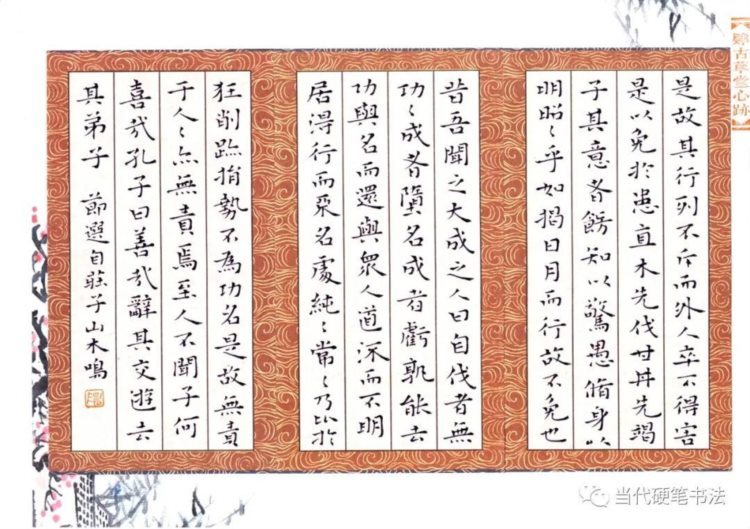 是故其行列不斥而外人卒不得害
是以免於患直木先伐甘井先竭
子其意者飾知以驚愚脩身以
明昭〻乎如揭日月而行故不免也
昔吾聞之大成之人曰自伐者無
功〻成者隳名成者虧孰能去
功與名而還與眾人道流而不明
居得行而不名處純〻常〻乃比於
狂削跡捐勢不為功名是故無責
于人〻亦無責焉至人不聞子何
喜哉孔子曰善哉辭其交遊去
其弟子 節選自莊子山木鳴
当代硬笔书法